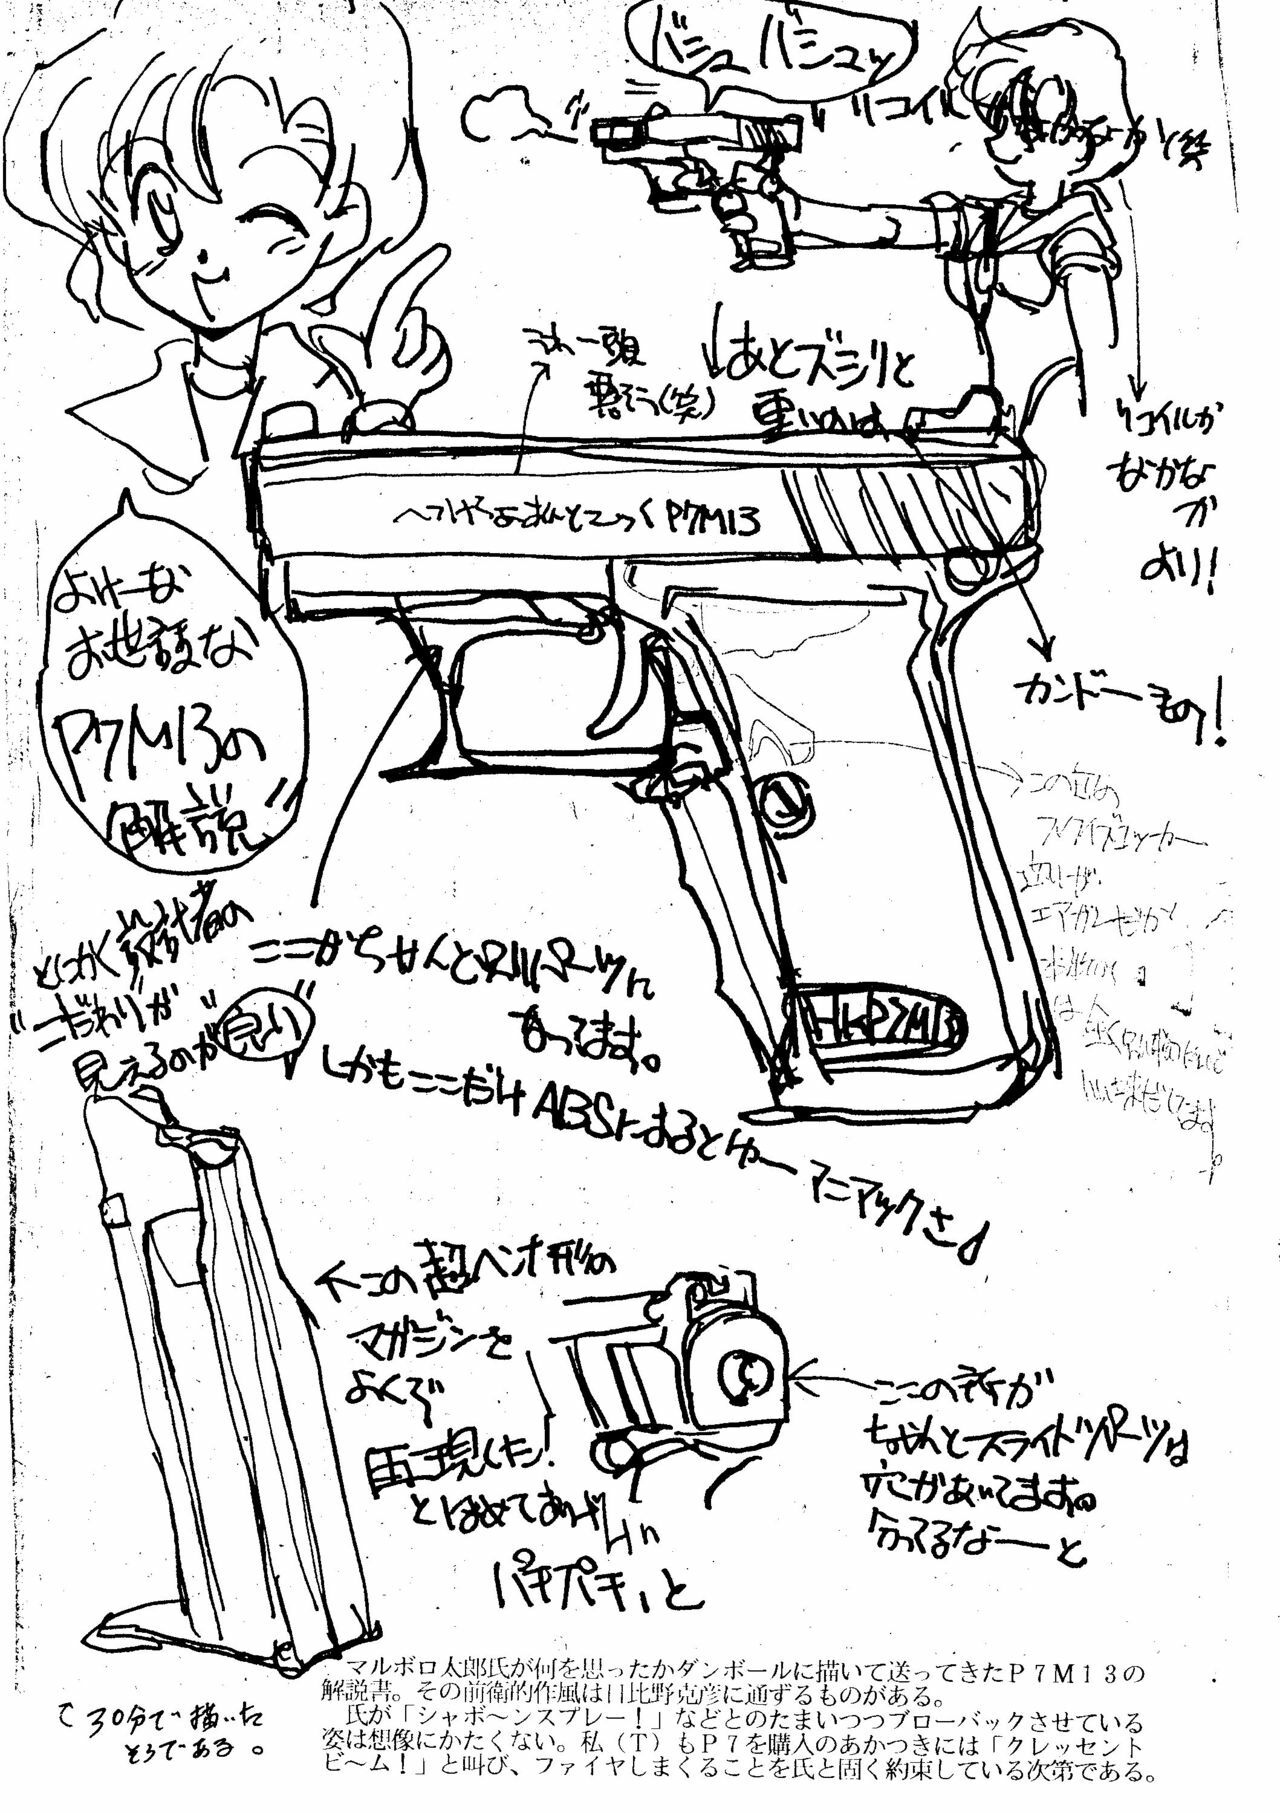 バシュ バシュッ
リコイル
↓あとズシリと
重いのは
うわー頭
悪そう(笑)
リコイルが
なかなか
より!
P7M13
よけーな
お世話な
P7M13の
解説"
カンドーもの!
この位の
スクイズコッカー
エアガンだから
とにかく設計者の
"こだわり"が
見えるのが"良い"
ここがちゃんと別パーツに
なってます。
しかもここだけABSにするとゆーマニアックさ♪
HK P7M13
←この超ヘンな形の
マガジンを
よくぞ
再現した!
とほめてあげたい
パチパチ、と
ここの所が
ちゃんとスライドパーツは
穴があいてます。
分ってるなーと
マルボロ太郎氏が何を思ったかダンボールに描いて送ってきたP7M13の
解説書。その前衛的作風は日比野克彦に通ずるものがある。
氏が「シャボ〜ンスプレー!」などとのたまいつつブローバックさせている
姿は想像にかたくない。私(T)もP7を購入のあかつきには「クレッセント
ビ〜ム!」と叫び、ファイヤしまくることを氏と固く約束している次第である。
30分で描いた
そうである。